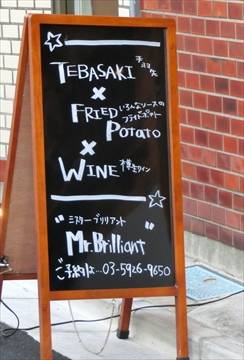 TEBASAKI 手羽先
×
FRIED いろんなソースの
POTATO フライドポテト
×
WINE 樽生ワイン
"ミスターブリリアント"
Mr.Brilliant
ご予約は…03-5926-9650